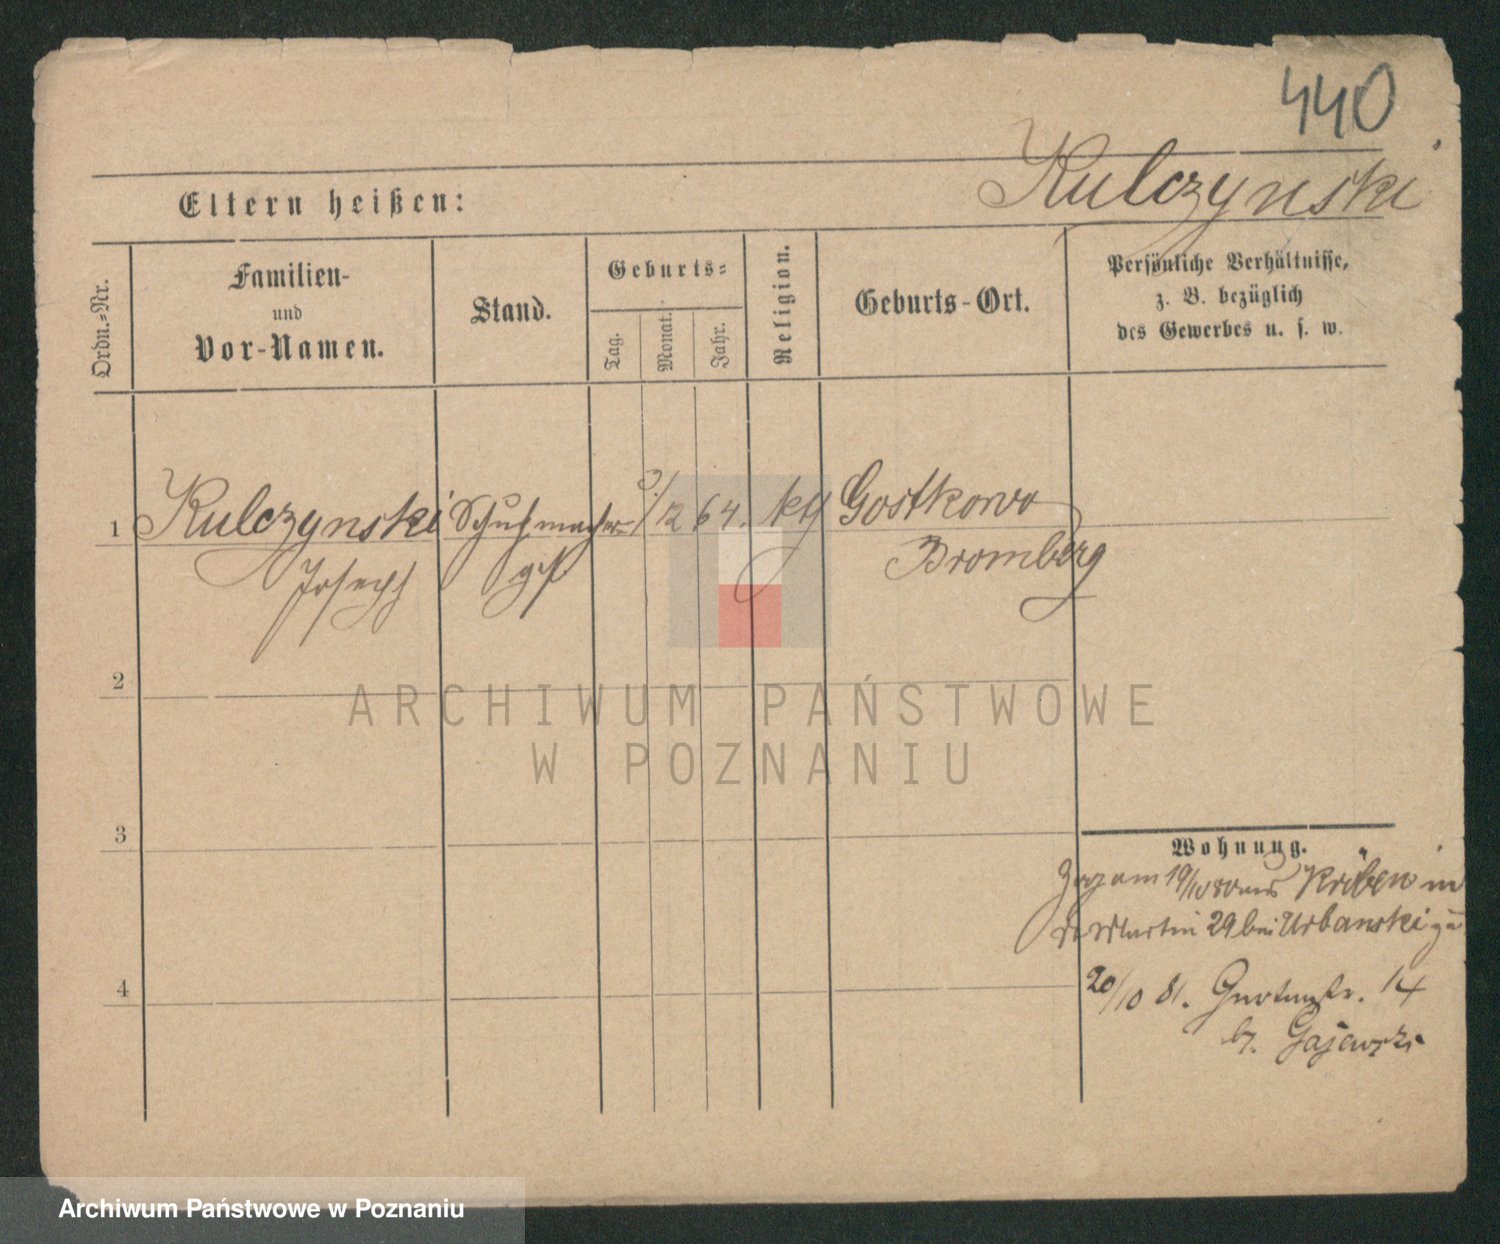 440
Kulczynski
Eltern heißen:
Ordn.=Nr.
Familien-
und
Vor-Namen.
Stand.
Geburts=
Tag.
Monat.
Jahr.
Religion.
Geburts-Ort.
Persönliche Verhältnisse,
z. B. bezüglich
des Gewerbes u. s. w.
1 Kulczynski Schuhmacher- 12 64. kth Gostkowo
Joseph Bromberg
2
ARCHIWUM PAŃSTWOWE
W POZNANIU
3
Wohnung.
Zog am 19/10 80 aus Kriben in
St Martin 29 bei Urbanski zu
4
20/10 81. Gartenstr. 14
b. Gajewski
Archiwum Państwowe w Poznaniu